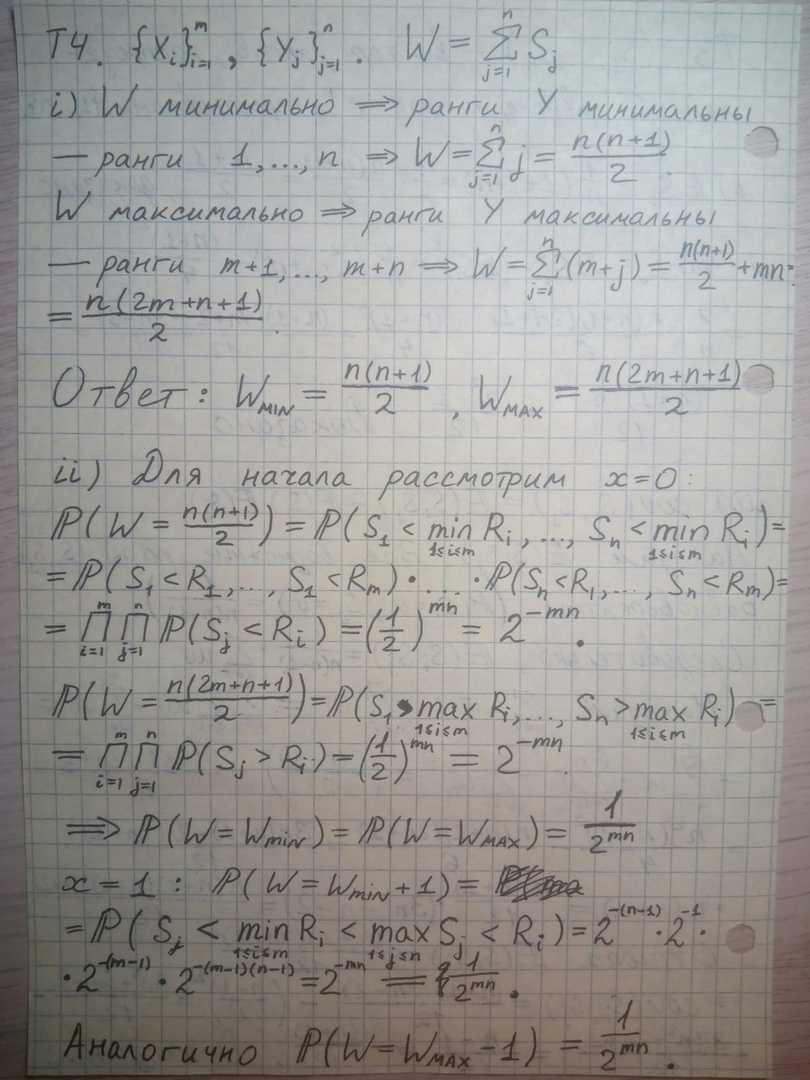 T4. {X_i}_{i=1}^m, {Y_j}_{j=1}^n. W = ∑_{j=1}^n S_j
i) W минимально ⟹ ранги Y минимальны
— ранги 1,...,n ⟹ W = ∑_{j=1}^n j = n(n+1)/2.
W максимально ⟹ ранги Y максимальны
— ранги m+1,..., m+n ⟹ W = ∑_{j=1}^n (m+j) = n(n+1)/2 + mn =
= n(2m+n+1)/2.
Ответ: W_MIN = n(n+1)/2, W_MAX = n(2m+n+1)/2
ii) Для начала рассмотрим x=0:
ℙ(W = n(n+1)/2) = ℙ(S_1 < min_{1≤i≤m} R_i,..., S_n < min_{1≤i≤m} R_i) =
= ℙ(S_1 < R_1,..., S_1 < R_m) · ... · ℙ(S_n < R_1,..., S_n < R_m) =
= ∏_{i=1}^m ∏_{j=1}^n ℙ(S_j < R_i) = (1/2)^{mn} = 2^{-mn}.
ℙ(W = n(2m+n+1)/2) = ℙ(S_1 > max_{1≤i≤m} R_i,..., S_n > max_{1≤i≤m} R_i) =
= ∏_{i=1}^m ∏_{j=1}^n ℙ(S_j > R_i) = (1/2)^{mn} = 2^{-mn}.
⟹ ℙ(W = W_min) = ℙ(W = W_MAX) = 1/2^{mn}
x = 1 : ℙ(W = W_min + 1) =
= ℙ(S_j < min_{1≤i≤m} R_i < max_{1≤j≤n} S_j < R_i) = 2^{-(n-1)} · 2^{-1} ·
· 2^{-(m-1)} · 2^{-(m-1)(n-1)} = 2^{-mn} = 1/2^{mn}.
Аналогично ℙ(W = W_MAX - 1) = 1/2^{mn}.